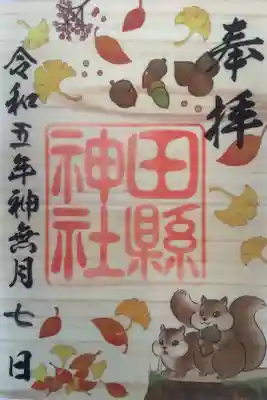 奉拝
田縣
神社
令和五年神無月七日